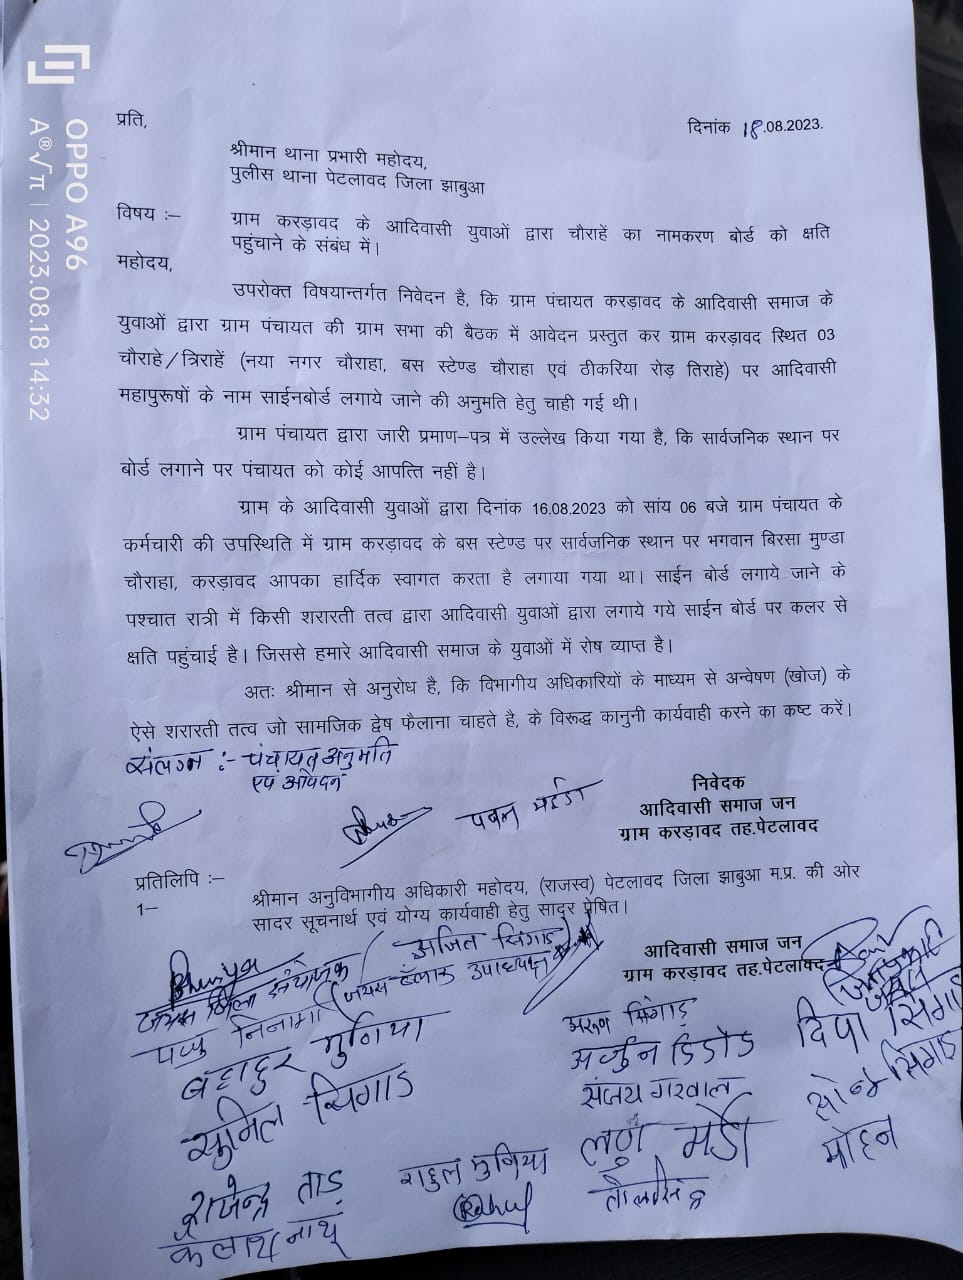 OPPO A96
A®√π | 2023.08.18 14:32
प्रति,
दिनांक 18.08.2023.
श्रीमान थाना प्रभारी महोदय,
पुलीस थाना पेटलावद जिला झाबुआ
विषय :– ग्राम करड़ावद के आदिवासी युवाओं द्वारा चौराहें का नामकरण बोर्ड को क्षति
पहुंचाने के संबंध में।
महोदय,
उपरोक्त विषयान्तर्गत निवेदन है, कि ग्राम पंचायत करड़ावद के आदिवासी समाज के
युवाओं द्वारा ग्राम पंचायत की ग्राम सभा की बैठक में आवेदन प्रस्तुत कर ग्राम करड़ावद स्थित 03
चौराहे/त्रिराहें (नया नगर चौराहा, बस स्टेण्ड चौराहा एवं ठीकरिया रोड़ तिराहे) पर आदिवासी
महापुरूषों के नाम साईनबोर्ड लगाये जाने की अनुमति हेतु चाही गई थी।
ग्राम पंचायत द्वारा जारी प्रमाण–पत्र में उल्लेख किया गया है, कि सार्वजनिक स्थान पर
बोर्ड लगाने पर पंचायत को कोई आपत्ति नहीं है।
ग्राम के आदिवासी युवाओं द्वारा दिनांक 16.08.2023 को सांय 06 बजे ग्राम पंचायत के
कर्मचारी की उपस्थिति में ग्राम करड़ावद के बस स्टेण्ड पर सार्वजनिक स्थान पर भगवान बिरसा मुण्डा
चौराहा, करड़ावद आपका हार्दिक स्वागत करता है लगाया गया था। साईन बोर्ड लगाये जाने के
पश्चात रात्री में किसी शरारती तत्व द्वारा आदिवासी युवाओं द्वारा लगाये गये साईन बोर्ड पर कलर से
क्षति पहुंचाई है। जिससे हमारे आदिवासी समाज के युवाओं में रोष व्याप्त है।
अतः श्रीमान से अनुरोध है, कि विभागीय अधिकारियों के माध्यम से अन्वेषण (खोज) के
ऐसे शरारती तत्व जो सामजिक द्वेष फैलाना चाहते है, के विरूद्ध कानुनी कार्यवाही करने का कष्ट करें।
संलग्न :- पंचायत अनुमति
एवं आवेदन
निवेदक
आदिवासी समाज जन
ग्राम करड़ावद तह.पेटलावद
पवन मईडा
प्रतिलिपि :–
1– श्रीमान अनुविभागीय अधिकारी महोदय, (राजस्व) पेटलावद जिला झाबुआ म.प्र. की ओर
सादर सूचनार्थ एवं योग्य कार्यवाही हेतु सादर प्रेषित।
आदिवासी समाज जन
ग्राम करड़ावद तह.पेटलावद
अजित सिंगाड़
जयस ब्लॉक उपाध्यक्ष
जयस जिला
पप्पु निनामा
बहादुर मुणिया
सुमिल सिगाड
राजेन्द्र ताड़
कैलाश नाथू
राहुल मुनिया
Rahul
अरुण सिंगाड़
अर्जुन डिंडोड
संजय गरवाल
दिपा सिंगाड़
सिंगाड
मोहन